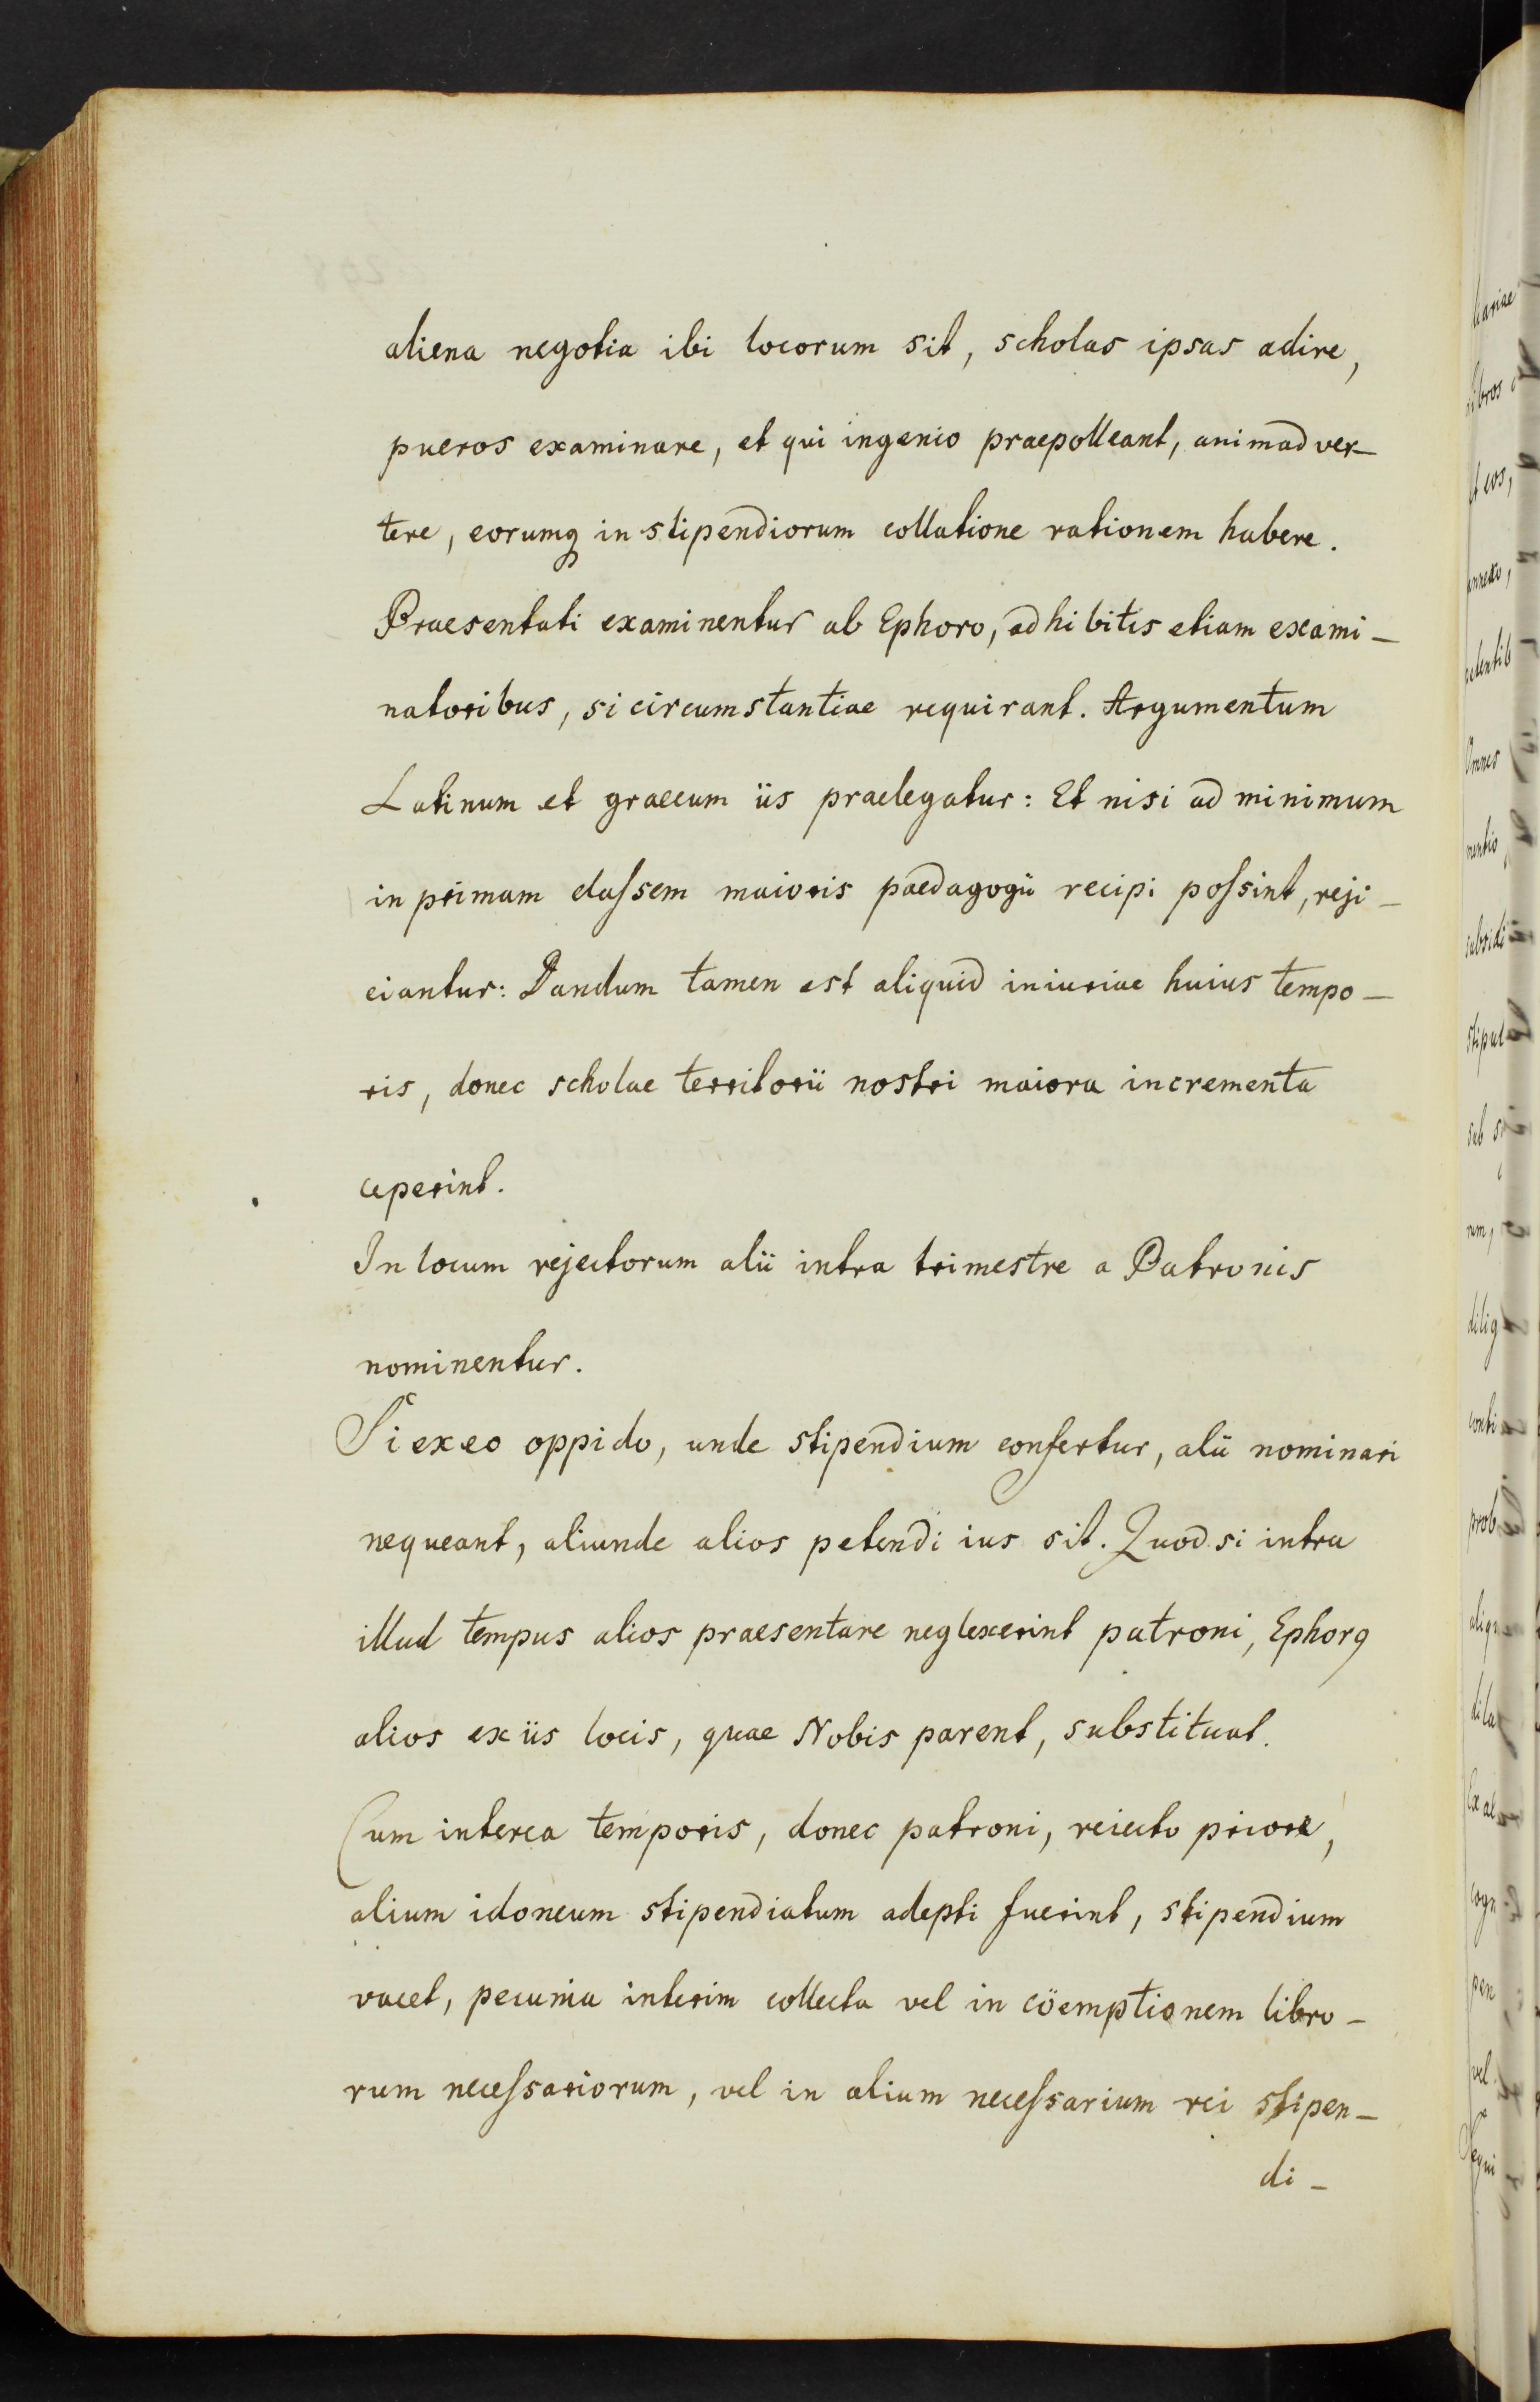 aliena negotia ibi locorum sit, scholas ipsas adire,
pueros examinare, et qui ingenio praepolleant, animadver-
tere, eorumq in stipendiorum collatione rationem habere.
Praesentati examinentur ab Ephoro, adhibitis etiam exami-
natoribus, si circumstantiae requirant. Argumentum
Latinum et graecum iis praelegatur: Et nisi ad minimum
in primam classem maioris paedagogii recipi possint, reji-
ciantur: Dandum tamen est aliquid iniuriae huius tempo-
ris, donec scholae territorii nostri maiora incrementa
ceperint.
In locum rejectorum alii intra trimestre a Patronis
nominentur.
Si ex eo oppido, unde stipendium confertur, alii nominari
nequeant, aliunde alios petendi ius sit. Quod si intra
illud tempus alios praesentare neglexerint patroni, Ephorq
alios ex iis locis, quae Nobis parent, substituat.
Cum interea temporis, donec patroni, reiecto priore,
alium idoneum stipendiatum adepti fuerint, stipendium
vacet, pecunia interim collecta vel in cöemptionem libro-
rum necessariorum, vel in alium necessarium rei stipen-
di-